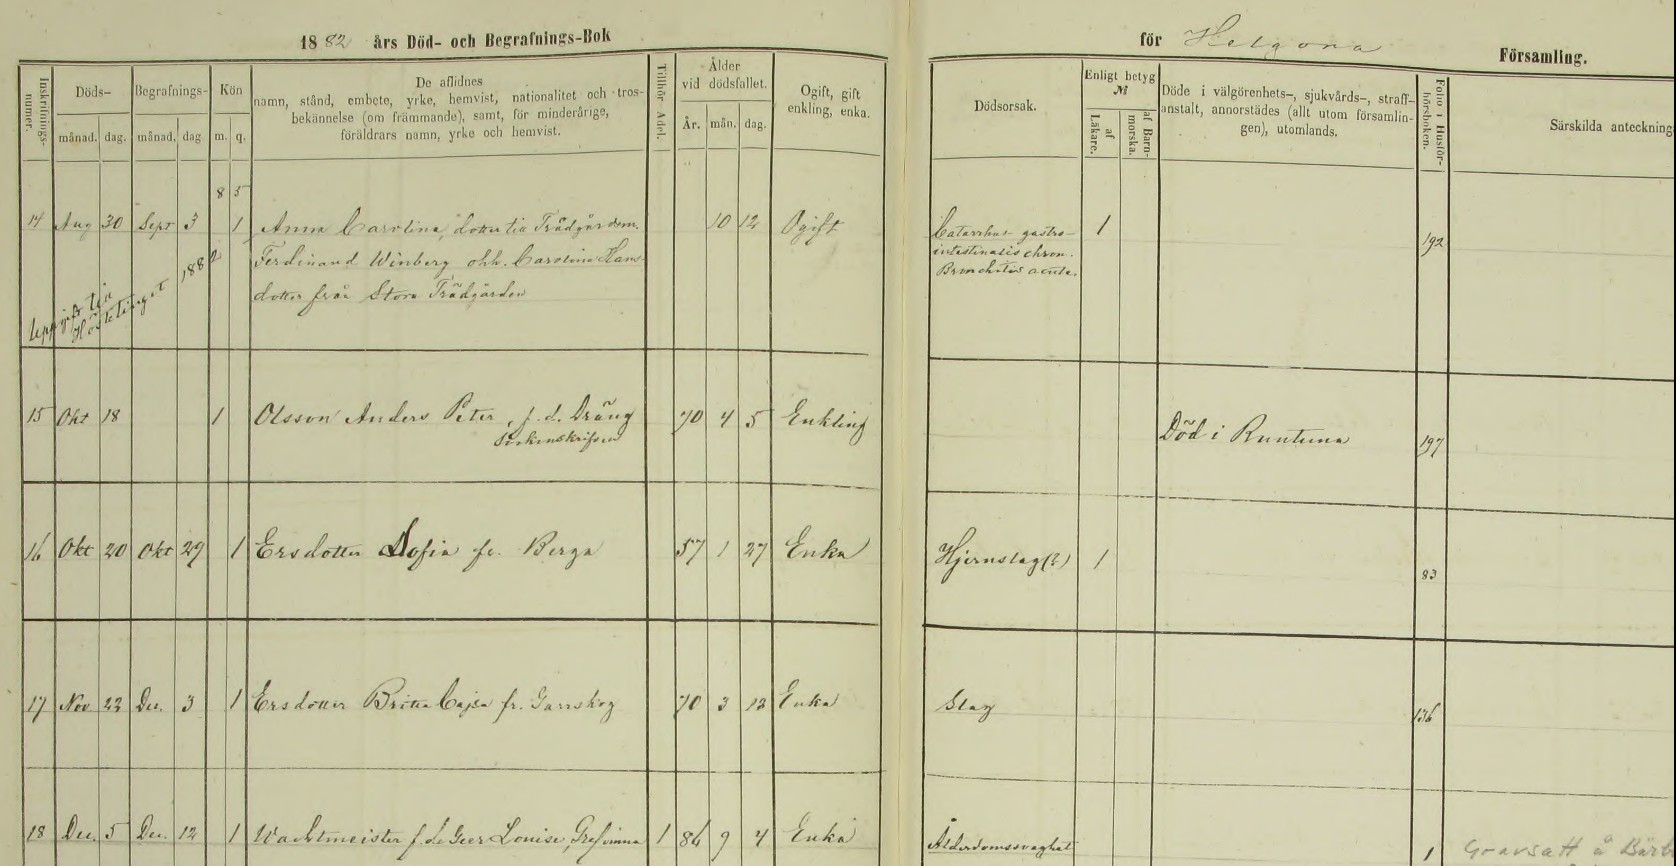 1882 års Död- och Begrafnings-Bok för Helgona Församling.
Inskrifnings-numer.
Döds-
månad. dag.
Begrafnings-
månad. dag
Kön
m. q.
De aflidnes
namn, stånd, embete, yrke, hemvist, nationalitet och tros-
bekännelse (om främmande), samt, för minderårige,
föräldrars namn, yrke och hemvist.
Tillhör Adel.
Ålder
vid dödsfallet.
År. mån. dag.
Ogift, gift
enkling, enka.
Dödsorsak.
Enligt betyg
№
af Läkare.
af Barn-morska.
Döde i välgörenhets-, sjukvårds-, straff-
anstalt, annorstädes (allt utom församlin-
gen), utomlands.
Folio i Husför-
hörsboken.
Särskilda anteckning
8 5
14 Aug 30 Sept 3 1 Anna Carolina, dotter till Trädgårdsm. 10 12 Ogift Catarrhus gastro- 1 192
Ferdinand Winberg och h. Carolina Hans- intestinalis chron.
dotter från Stora Trädgården Bronchitis acuta.
Uppgift till
Höstetinget 1882
15 Okt 18 1 Olsson Anders Peter, f.d. Dräng 70 4 5 Enkling Död i Runtuna 197
Sockenskrifven
16 Okt 20 Okt 29 1 Ersdotter Sofia fr. Berga 57 1 27 Enka Hjernslag(?) 1 83
17 Nov 22 Dec. 3 1 Ersdotter Britta Cajsa fr. Garrskog 70 3 12 Enka Slag 136
18 Dec. 5 Dec. 12 1 Wachtmeister f. de Geer Louise, Grefvinna 1 86 9 4 Enka Ålderdomssvaghet 1 Gravsatt å Bärb